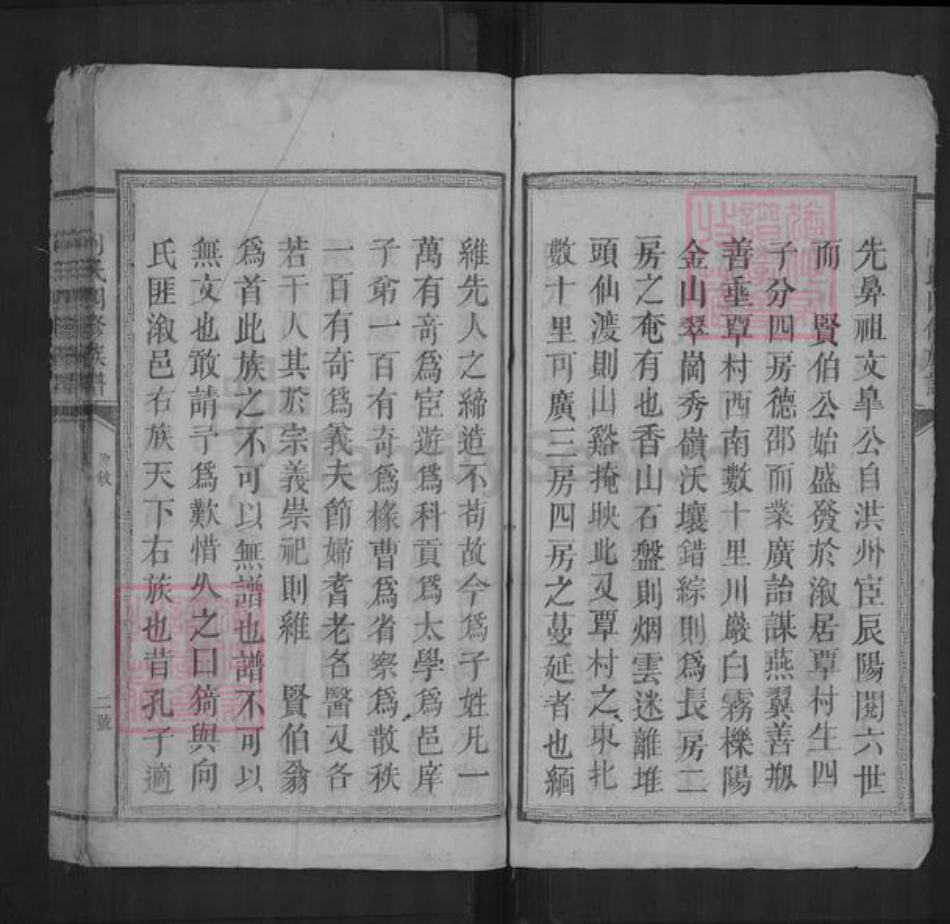 先鼻祖文皐公自洪州宦辰陽閱六世
而　賢伯公始盛發於溆居覃村生四
子分四房德邵而業廣詒謀燕翼善瓶
善垂覃村西南數十里川巖白霧櫟陽
金山翠崗秀嶺沃壤錯綜則爲長房二
房之奄有也香山石盤則烟雲迷離堆
頭仙渡則山谿掩映此又覃村之東北
數十里可廣三房四房之蔓延者也緬
維先人之締造不苟故今爲子姓凡一
萬有奇爲宦遊爲科貢爲太學爲邑庠
子弟一百有奇爲椽曹爲省察爲散秩
一百有奇爲義夫節婦耆老名醫又各
若干人其於宗義崇祀則維　賢伯翁
爲首此族之不可以無譜也譜不可以
無文也敢請予爲歎惜久之曰猗與向
氏匪溆邑右族天下右族也昔孔子適
氏四修族譜
二號